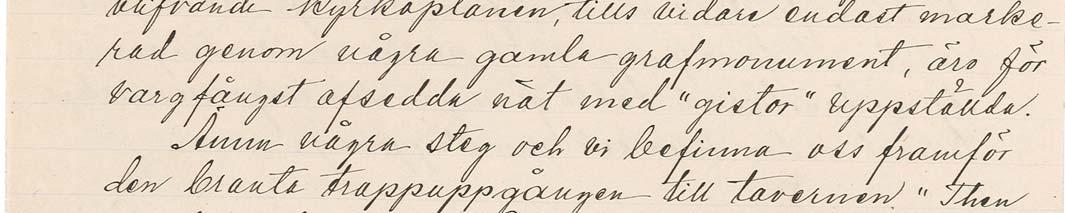 blifvande kyrkoplanen, tills vidare endast marke-
rad genom några gamla grafmonument, äro för
vargfångst afsedda nät med "gistor" uppstälda.
Ännu några steg och vi befinna oss framför
den branta trappuppgången till tavernen "Then